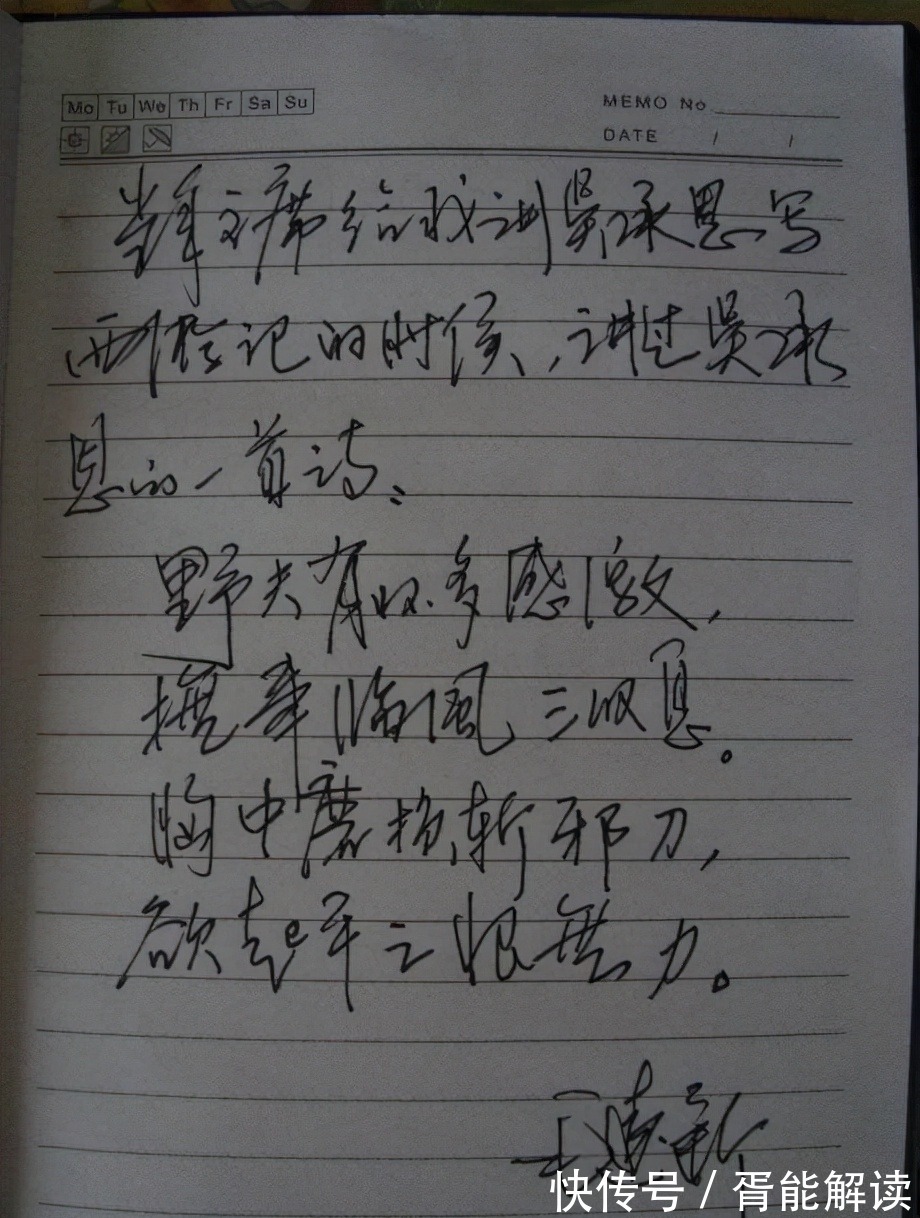 Mo Tu We Th Fr Sa Su
MEMO No
DATE / /
主席给我讲吴承恩写
西游记的时候，讲过吴承
恩的一首诗：
野夫有收多感激，
抚事临风三叹息。
胸中磨损斩邪刀，
欲起平之恨无力。
王建新
快传号 / 胥能解读